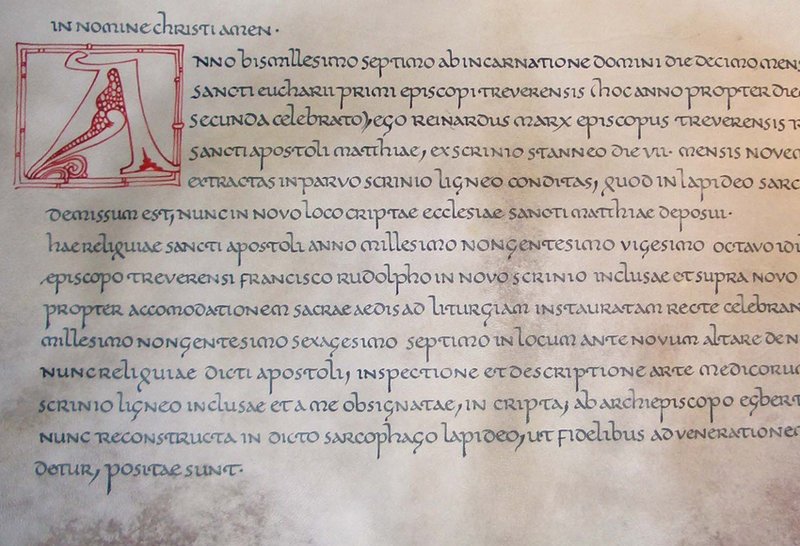 in nomine christi amen.
Anno bismillesimo septimo ab incarnatione domini die decimo mens
sancti eucharii primi episcopi treverensis (hoc anno propter die
secunda celebrato), ego reinardus marx episcopus treverensis r
sancti apostoli matthiae, ex scrinio stanneo die vii. mensis novem
extractas in parvo scrinio ligneo conditas, quod in lapideo sarc
demissum est, nunc in novo loco criptae ecclesiae sancti matthiae deposui.
hae reliquiae sancti apostoli anno millesimo nongentesimo vigesimo octavo idi
episcopo treverensi francisco rudolpho in novo scrinio inclusae et supra novo
propter accomodationem sacrae aedis ad liturgiam instauratam recte celebran
millesimo nongentesimo sexagesimo septimo in locum ante novum altare de n
nunc reliquiae dicti apostoli, inspectione et descriptione arte medicoru
scrinio ligneo inclusae et a me obsignatae, in cripta, ab archiepiscopo egbert
nunc reconstructa in dicto sarcophago lapideo, ut fidelibus ad venerationem
detur, positae sunt.